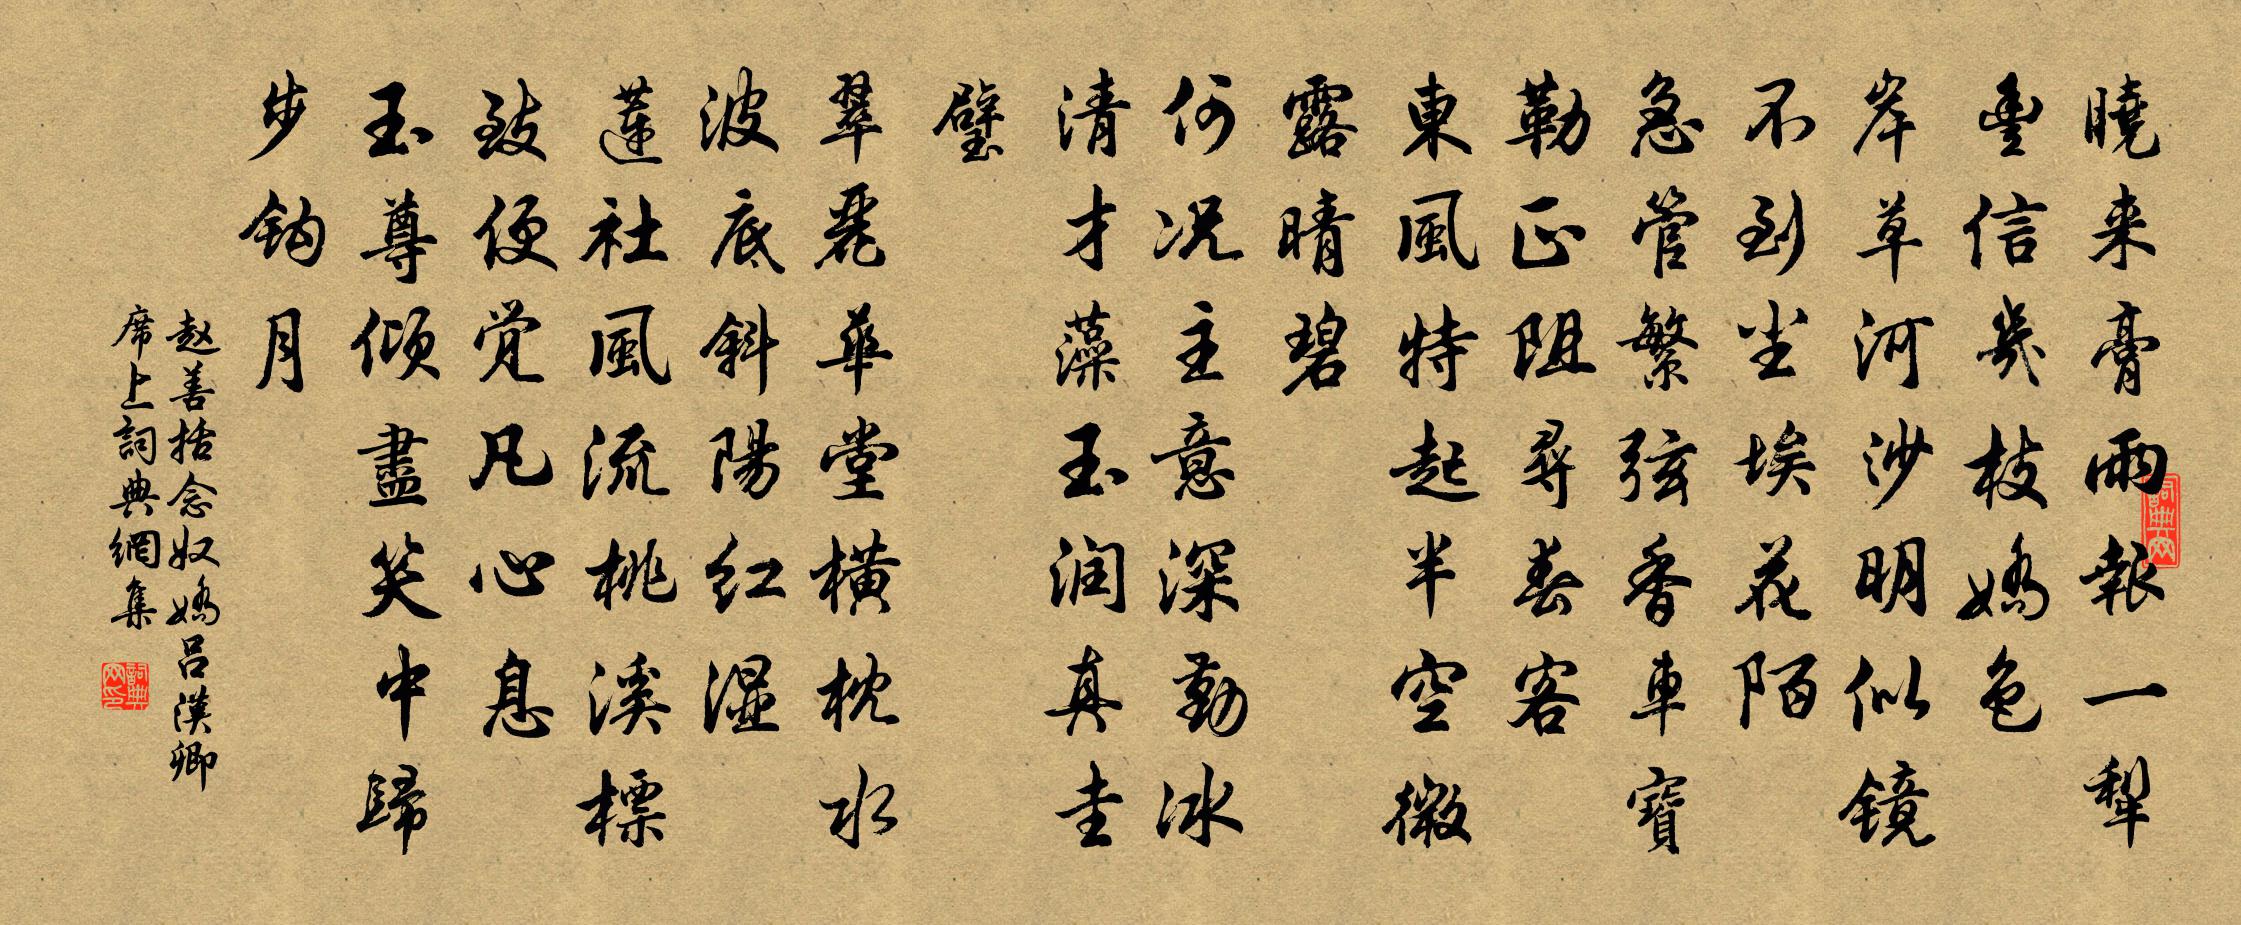 曉来膏雨報一犁
豊信幾枝嬌色
岸草河沙明似鏡
不到尘埃花陌
急管繁弦香車寶
勒正阻尋春客
東風特起半空微
露晴碧
何况主意深勤冰
清才藻玉润真圭
璧
翠麗華堂橫枕水
波底斜陽红濕
蓮社風流桃溪標
致便觉凡心息
玉尊倾盡笑中歸
步钩月
赵善括念奴嬌吕漢卿
席上詞典網集
詞典网
詞典网印